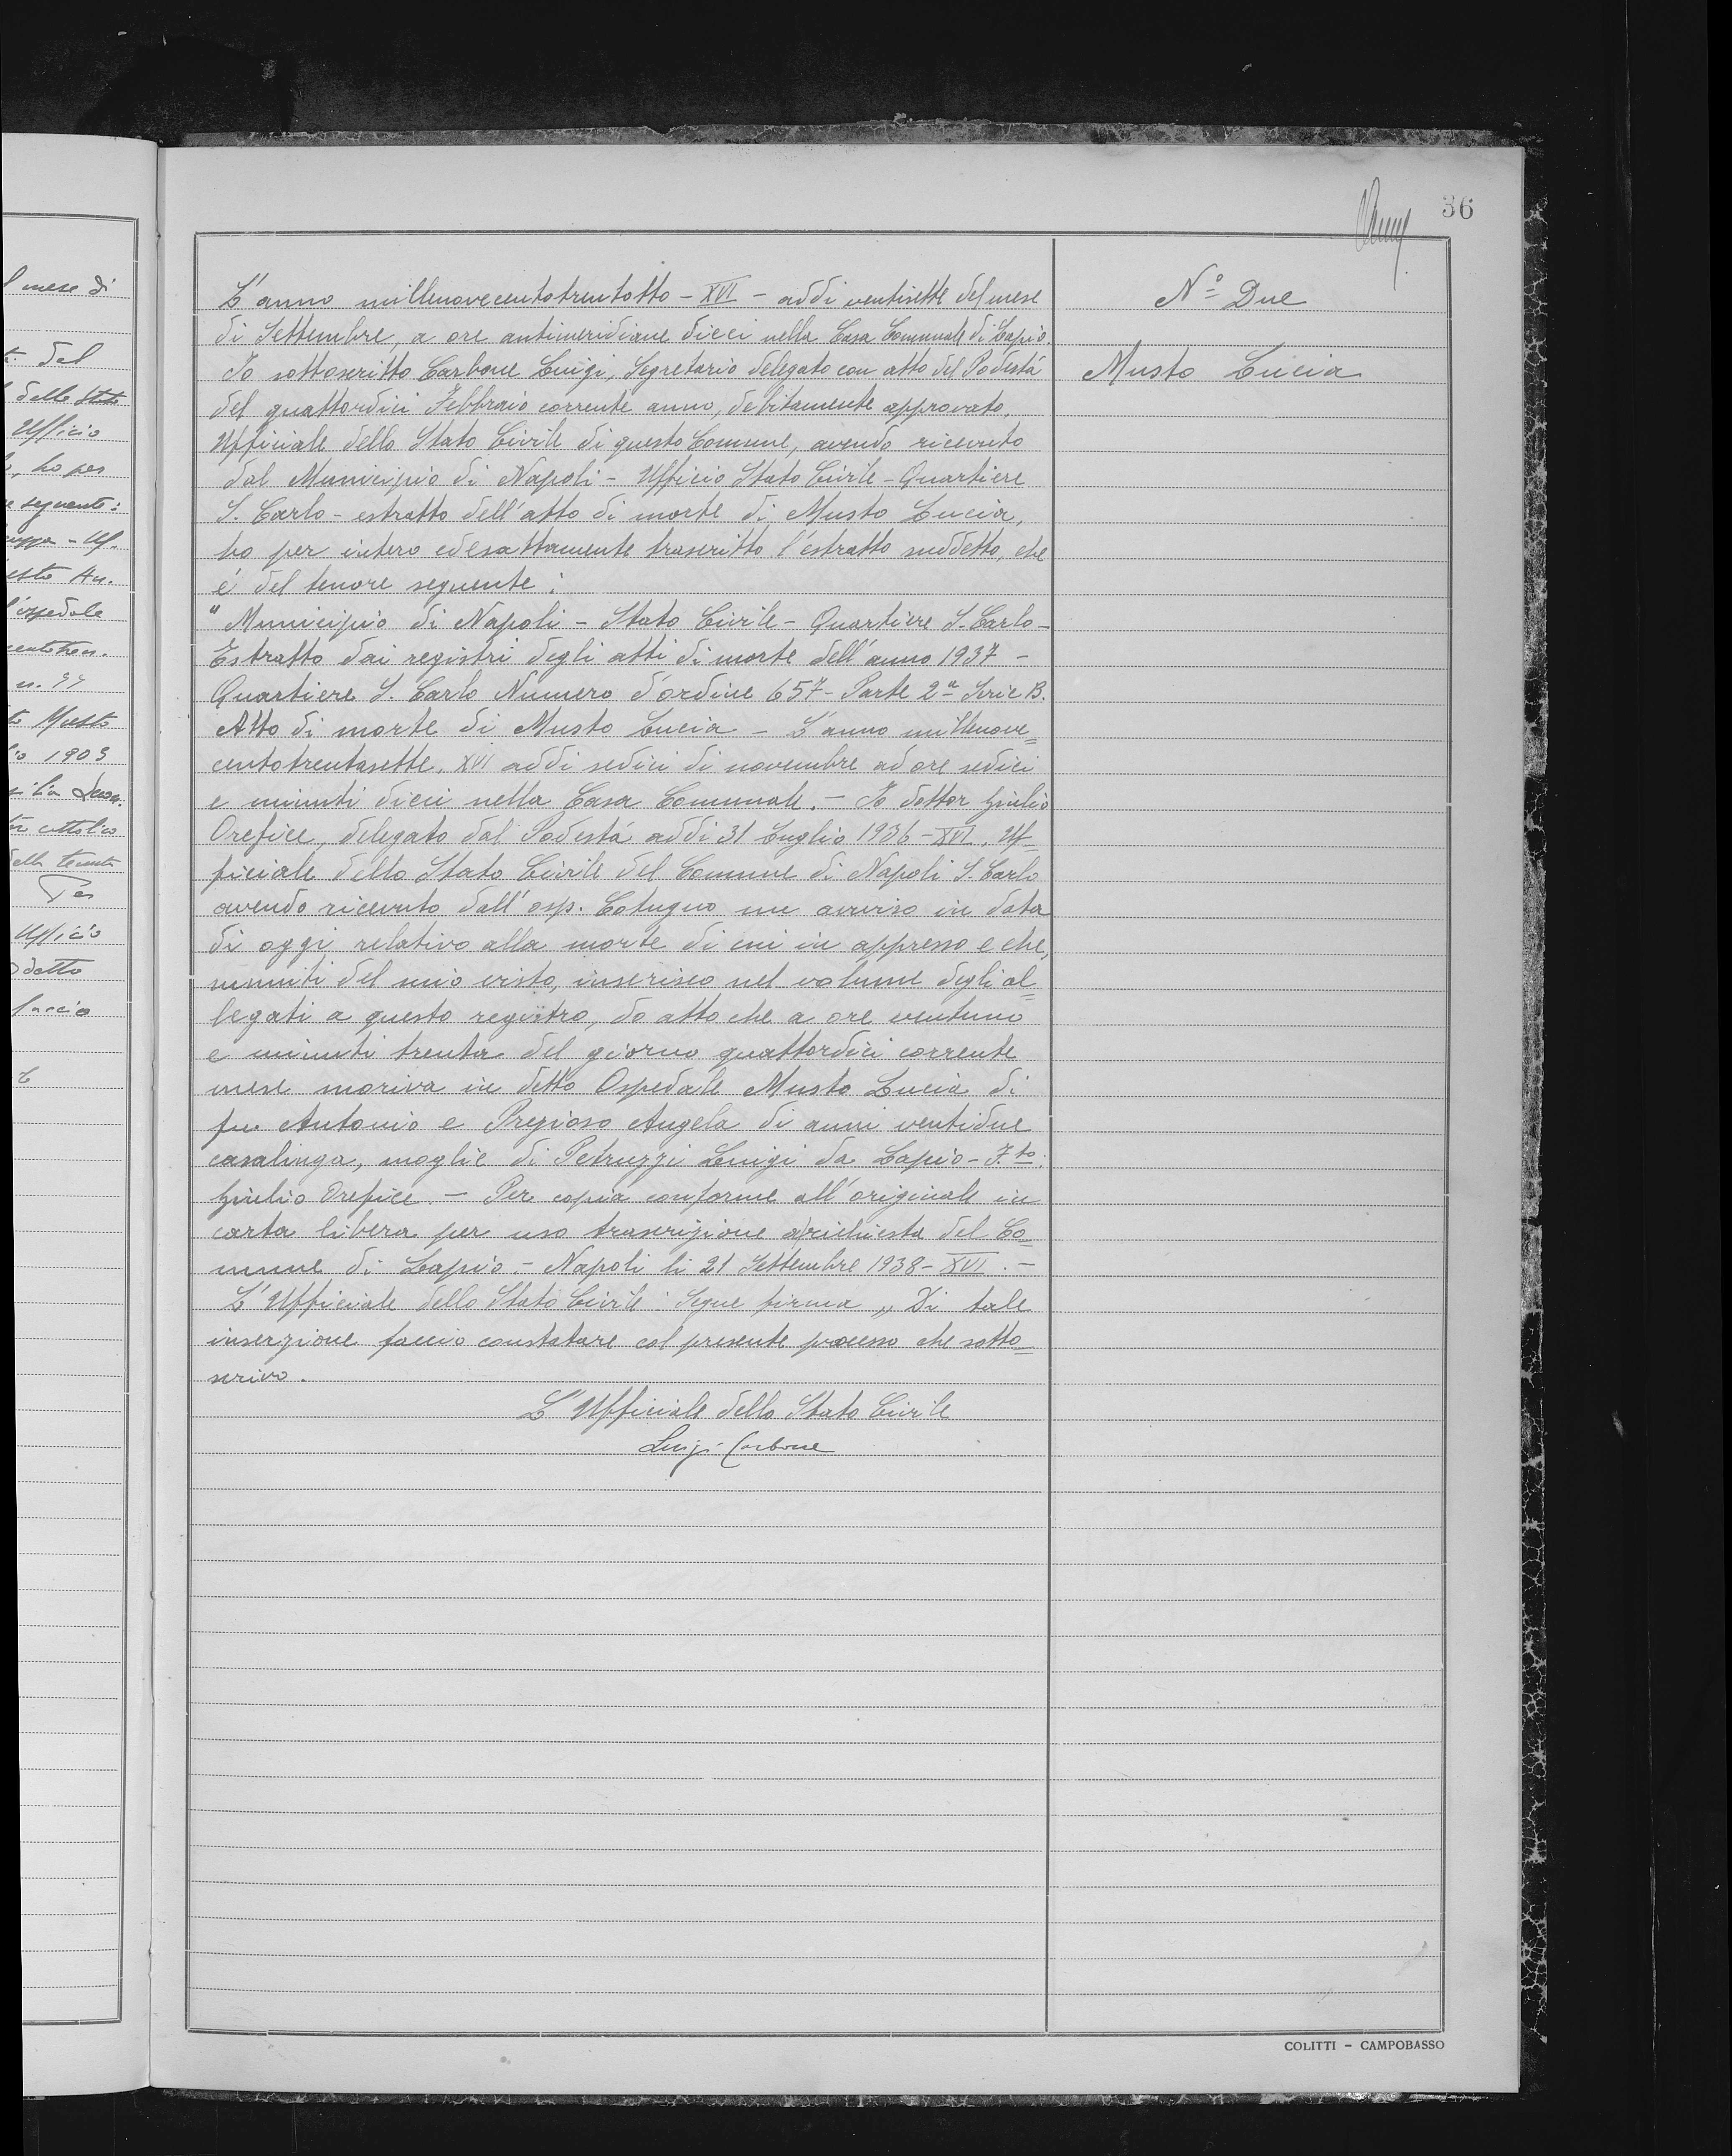 36
N° Due
Musto Lucia
L'anno millenovecentotrentotto - XVI - addi ventisette del mese
di Settembre, a ore antimeridiane dieci nella Casa Comunale di Lapio.
Io sottoscritto Carbone Luigi, Segretario delegato con atto del Podestá
del quattordici Febbraio corrente anno, debitamente approvato,
Ufficiale dello Stato Civile di questo Comune, avendo ricevuto
dal Municipio di Napoli - Ufficio Stato Civile - Quartiere
S. Carlo - estratto dell'atto di morte di Musto Lucia,
ho per intero ed esattamente trascritto l'estratto suddetto, che
é del tenore seguente:
"Municipio di Napoli - Stato Civile - Quartiere S. Carlo -
Estratto dai registri degli atti di morte dell'anno 1937 -
Quartiere S. Carlo Numero d'ordine 657 - Parte 2a Serie B.
Atto di morte di Musto Lucia - L'anno millenove=
centotrentasette, XVI addi sedici di novembre ad ore sedici
e minuti dieci nella Casa Comunale. - Io dottor Giulio
Orefice, delegato dal Podestá addi 31 Luglio 1936 - XVI, Uf=
ficiale dello Stato Civile del Comune di Napoli S. Carlo
avendo ricevuto dall'osp. Cotugno un avviso in data
di oggi relativo alla morte di cui in appresso e che,
muniti del mio visto, inserisco nel volume degli al=
legati a questo registro, do atto che a ore ventuno
e minuti trenta del giorno quattordici corrente
mese moriva in detto Ospedale Musto Lucia di
fu Antonio e Prezioso Angela di anni ventidue
casalinga, moglie di Petruzzi Luigi da Lapio - F.to:
Giulio Orefice. - Per copia conforme all'originale in
carta libera per uso trascrizione a richiesta del Co=
mune di Lapio - Napoli li 21 Settembre 1938 - XVI. -
L'Ufficiale dello Stato Civile: Segue firma „ Di tale
inserzione faccio constatare col presente processo che sotto=
scrivo.
L'Ufficiale dello Stato Civile
Luigi Carbone
COLITTI - CAMPOBASSO
l mese di
del
dello Stato
Ufficio
ho per
e seguente:
l'ospedale
Musto
1903
Per
Ufficio
detto
faccio